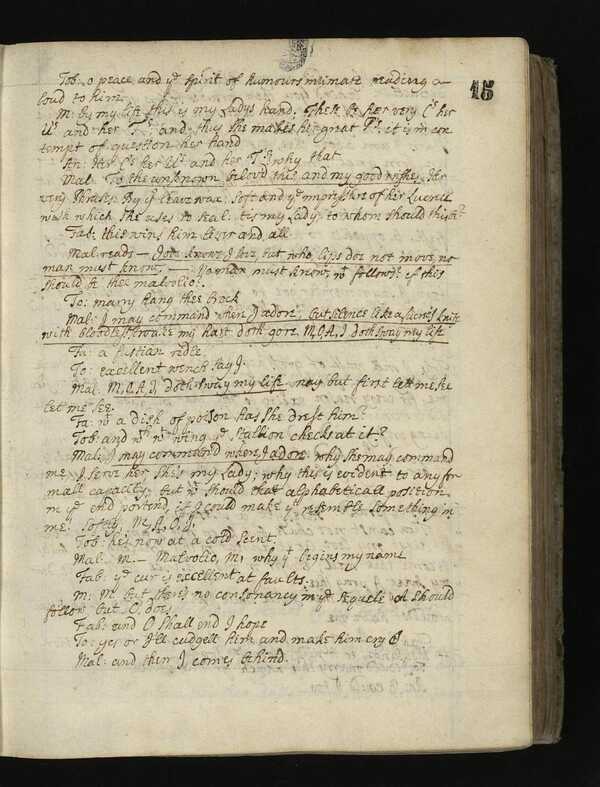 15
Tob: o peace and yͤ spirit of humours intimate reading a
loud to him
M: by my life this is my Ladys hand. These be her very Cˢ her
Uˢ and her Tˢ; and thus she makes her great Pˢ. it is in con
tempt of question her hand
An: Her Cˢ her Uˢ and her Tˢ: why that
Mal: To the unknown belov'd this and my good wishes. Her
very Phrases By yͬ leave wax: soft and yͤ impressure of her Lucrece
with which she uses to seal. tis my Lady. to whom should this bᵉ?
Fab: this wins him liver and all
Mal reads — Jove knows I love, but who, lips doe not move, no
man must know, — No man must know, wᵗ follows? if this
should be thee malvolio.
To: marry hang thee Brock
Mal: I may command where I adore, but silence like a Lucres knife
with bloodless stroake my hart doth gore M,O,A,I doth sway my life
Fa: a fustian ridle
To: excellent wench say I.
Mal: M,O,A,I, doth sway my life nay but first let me see
let me see.
Fa: wᵗ a dish of poison has she drest him?
Tob: and wᵗʰ wᵗ wing yͤ stallion checks at it?
Mal: I may command where I adore. why she may command
me, I serve her she's my Lady; why this is evident to any for
mall capacity, but wᵗ should that alphabeticall position
in yͤ end portend, if I could make yᵗ resemble something in
me, softly, M,O,A,I,
Tob: he's now at a cold scent.
Mal: M. — Malvolio, M, why yᵗ begins my name
Fab: yͤ cur is excellent at faults.
M: M. but theres no consonancy in yͤ sequele A should
follow but O does
Fab: and O shall end I hope
To: yes or I'll cudgell him and make him cry O
Mal: and then I comes behind.